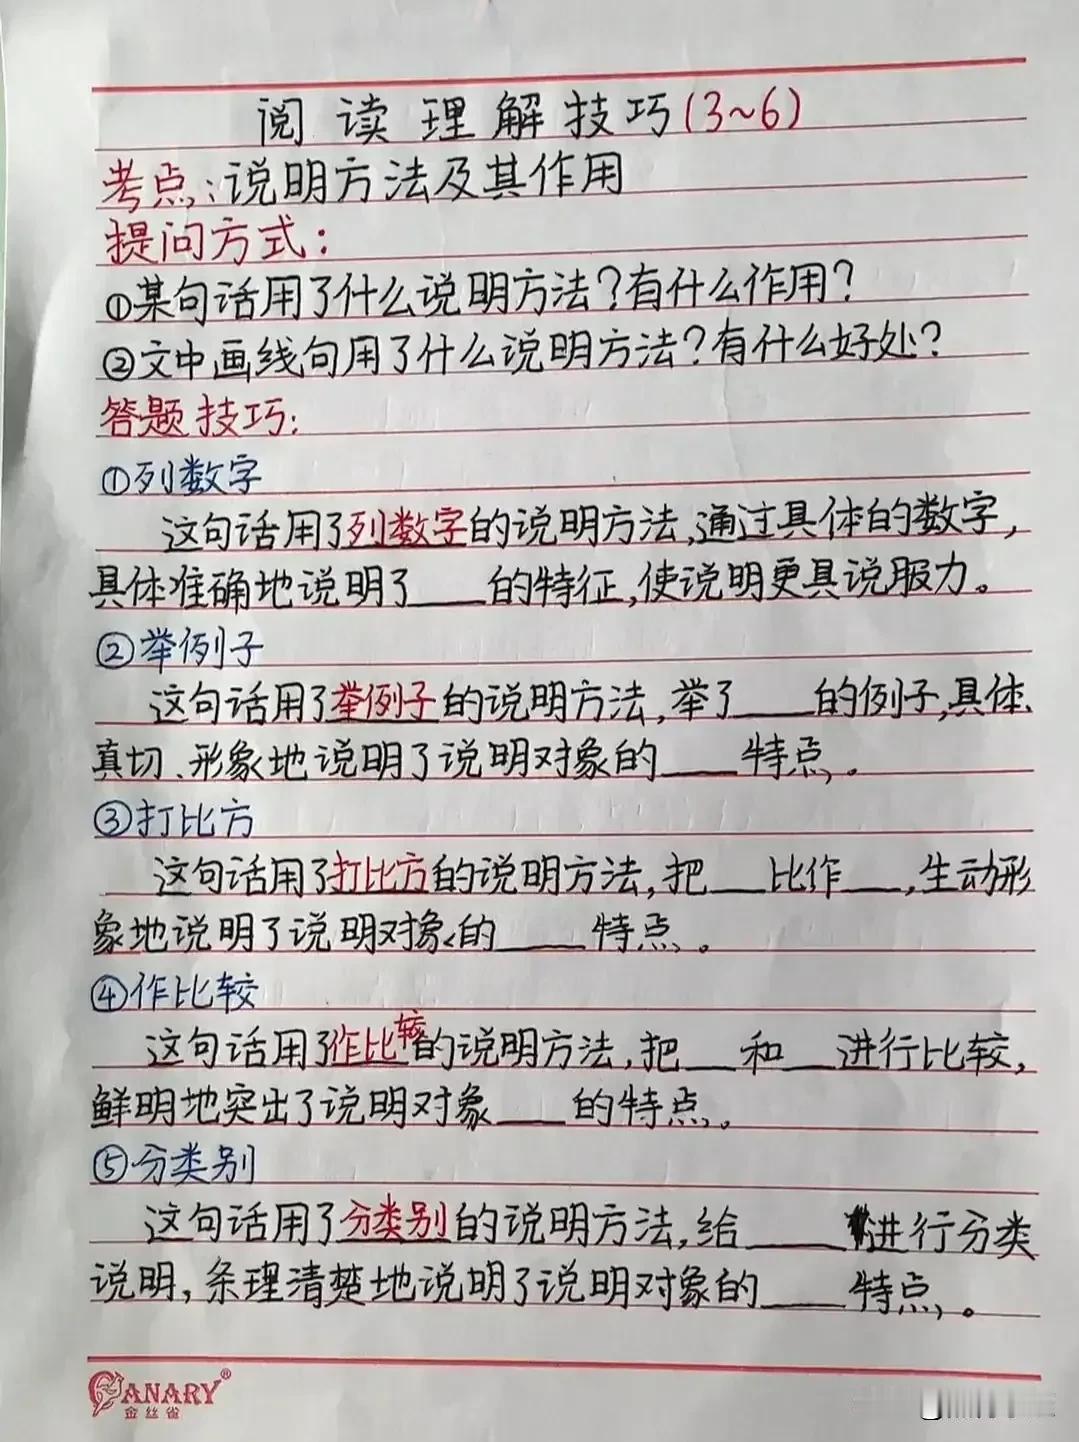 阅读理解技巧(3~6)
考点:说明方法及其作用
提问方式:
①某句话用了什么说明方法?有什么作用?
②文中画线句用了什么说明方法?有什么好处?
答题技巧:
①列数字
这句话用了列数字的说明方法,通过具体的数字,
具体准确地说明了____的特征,使说明更具说服力。
②举例子
这句话用了举例子的说明方法,举了____的例子,具体、
真切、形象地说明了说明对象的____特点。
③打比方
这句话用了打比方的说明方法,把___比作___,生动形
象地说明了说明对象的____特点。
④作比较
这句话用了作比较的说明方法,把___和___进行比较,
鲜明地突出了说明对象____的特点。
⑤分类别
这句话用了分类别的说明方法,给____进行分类
说明,条理清楚地说明了说明对象的____特点。
CANARY®
金丝雀